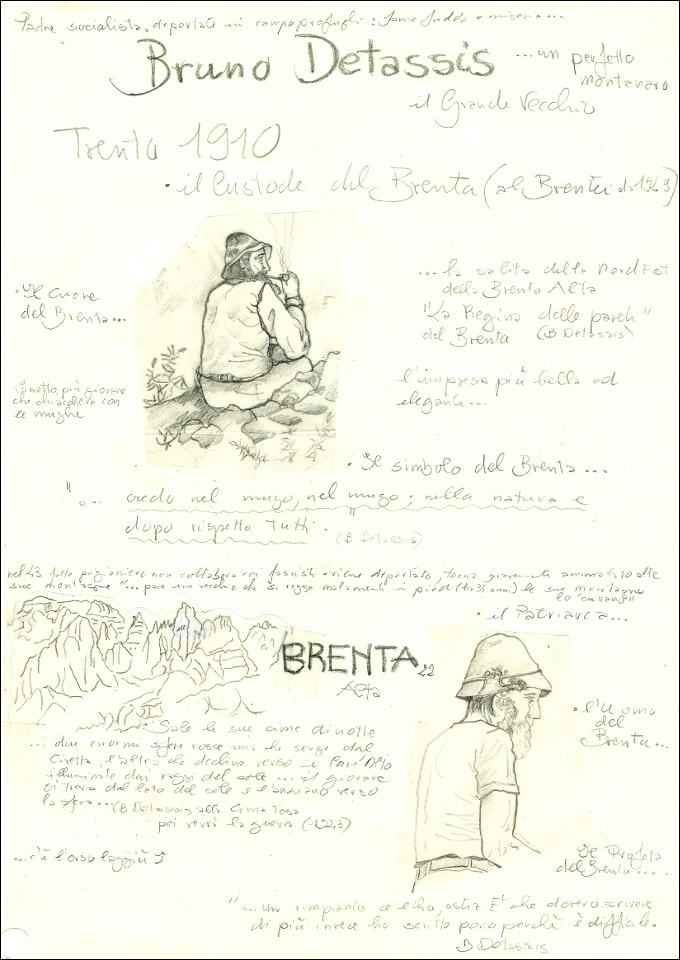 Padre socialista, deportato in campo profughi: fame freddo e miseria...
Bruno Detassis
...un perfetto
montanaro
il Grande Vecchio
Trento 1910
• il Custode del Brenta (al Brentei da 1949)
...la salita della Nord Est
della Brenta Alta
"La Regina delle pareti"
del Brenta (B Detassis)
l'impresa più bella ed
elegante...
• Il cuore
del Brenta...
più giovane
che chiacchiera con
le mughe
• Il simbolo del Brenta...
"... credo nel mugo, nel mugo; nella natura e
dopo rispetto Tutti." (B Detassis)
nel 43 fatto prigioniero non collabora coi fascisti viene deportato, torna gravemente ammalato alle
sue montagne "... pare un vecchio che si regge malamente in piedi (ha 35 anni) le sue montagne
lo curano"
• il Patriarca...
BRENTA
Alta
22
• l'Uomo
del
Brenta...
Sale le sue cime di notte
... due enormi sfere rosse una che sorge dal
Civetta, l'altra che declina verso il
illuminato dai raggi del sole ... il giovane
dal lato del sole e verso
la sfera... (B Detassis alla Cima Tosa
poi verrà la guerra
...c'è l'orso laggiù
Il Profeta
del Brenta...
"... un rimpianto ce l'ho, ostia E' che dovevo scrivere
di più invece ho scritto poco perchè è difficile.
B Detassis